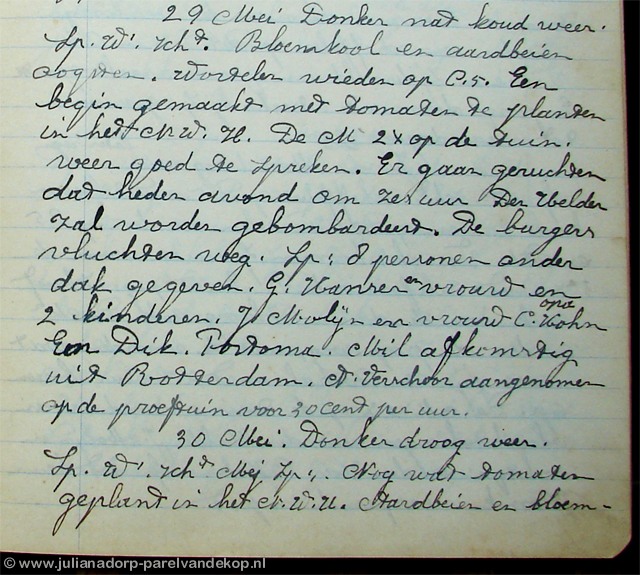 29 Mei Donker nat koud weer.
Sp. W'. Scht. Bloemkool en aardbeien
oogsten. Wortelen wieden op C.5. Een
begin gemaakt met tomaten te planten
in het N.W.H. De M 2x op de tuin.
weer goed te spreken. Er gaan geruchten
dat heden avond om zes uur Den Helder
zal worden gebombardeert. De burgers
vluchten weg. Sp: 8 personen onder
dak gegeven. G. Hansen en vrouw en
2 kinderen. J Molijn en vrouw C. opa Hohn
Een Dik. Mil afkomstig
uit Rotterdam. N. Verschoor aangenomen
op de proeftuin voor 30 cent per uur.
30 Mei. Donker droog weer.
Sp. W'. Scht Mej Sp:. Nog wat tomaten
geplant in het N.W.H. Aardbeien en bloem-
© www.julianadorp-parelvandekop.nl